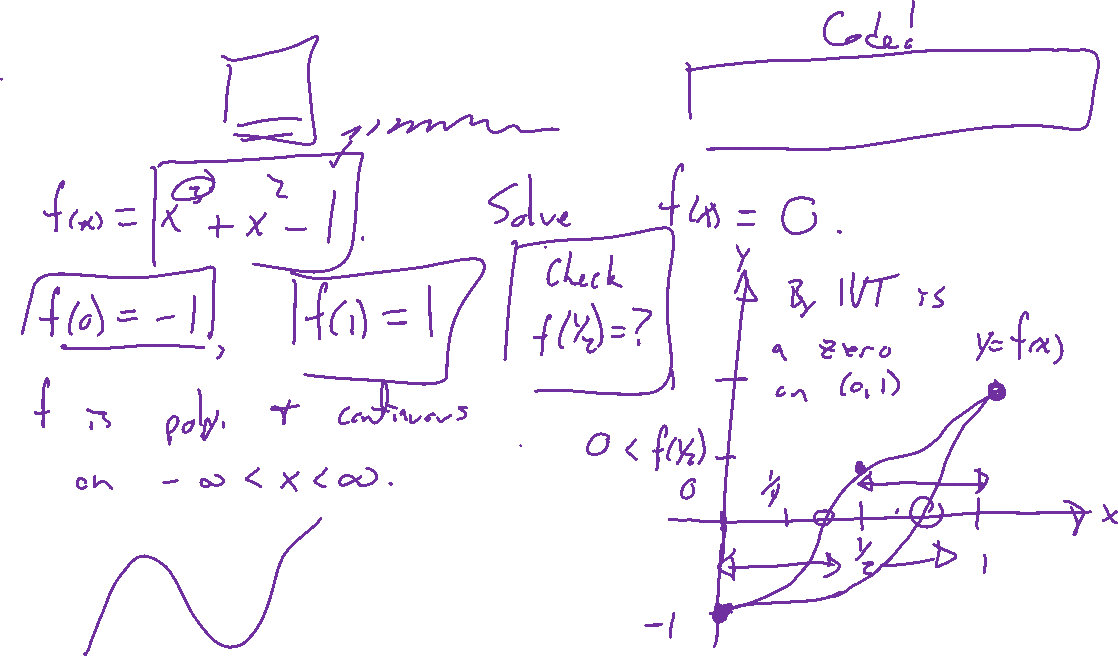 Code!
f(x) = x³ + x² - 1.
Solve f(x) = 0.
f(0) = -1,
f(1) = 1
Check
f(½) = ?
f is poly. + continuous
on -∞ < x < ∞.
y
By IVT is
a zero
on (0,1)
y = f(x)
0 < f(½)
0
¼
½
1
x
-1